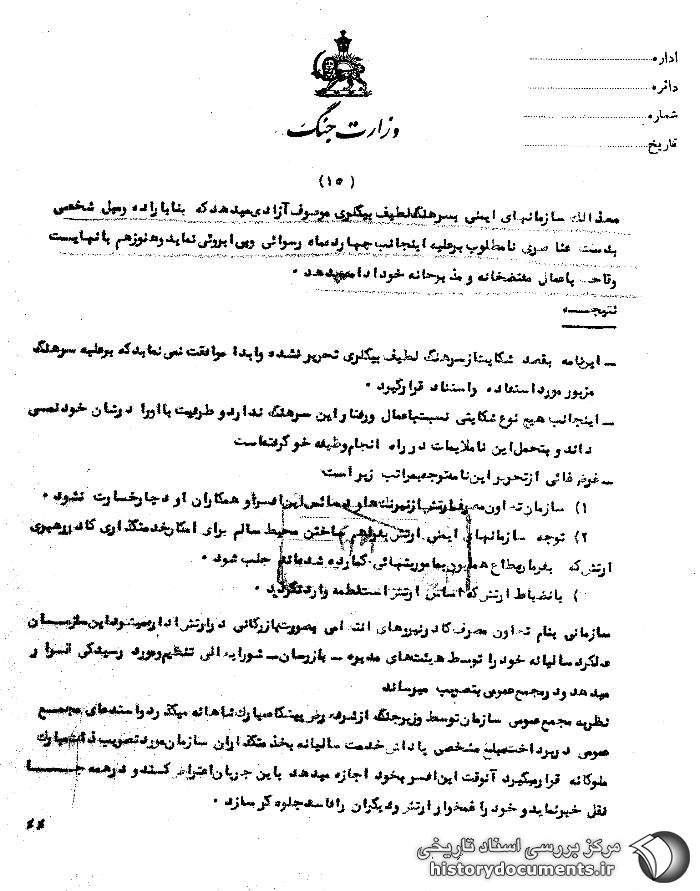 اداره
دائره
شماره
تاریخ
وزارت جنگ
(۱۵)
معذالک سازمانهای ایمنی بسرهنگ لطیف بیگلری موصوف آزادی میدهد که بنا باراده و میل شخصی
بدست عناصری نامطلوب برعلیه اینجانب چهارده ماه رسوائی وبی ابروئی نماید و هنوزهم با نهایت
وقاحت باعمال مفتضحانه و مذبوحانه خود ادامه میدهد .
نتیجه
ــ این نامه بقصد شکایت از سرهنگ لطیف بیگلری تحریر نشده وابدا موافقت نمی نماید که برعلیه سرهنگ
مزبور مورد استفاده واستناد قرارگیرد .
ــ اینجانب هیچ نوع شکایتی نسبت باعمال ورفتار این سرهنگ ندارد و طرفیت با او را درشان خود نمی
داند و بتحمل این ناملایمات در راه انجام وظیفه خو گرفته است
ــ غرض غائی از تحریر این نامه توجه بمراتب زیر است
۱) سازمان تعاون مصرف ارتش از نیرنگ ها و دسائس این افسر و همکاران او دچار خسارت نشود .
۲) توجه سازمانهای ایمنی ارتش بفراهم ساختن محیط سالم برای امکار خدمتگذاری کادر رهبری
ارتش که بفرمان مطاع همایون بماموریتهائی گمارده شده اند جلب شود .
) بانضباط ارتش که اساس ارتش است لطمه وارد نگردد .
سازمانی بنام تعاون مصرف کادر نیروهای انتظامی بصورت بازرگانی در ارتش اداره میشود این سازمان
عملکرد سالیانه خود را توسط هیئتهای مدیره ــ بازرسان ــ شورایعالی تنظیم و مورد رسیدگی قرار
میدهد و در مجمع عمومی بتصویب میرساند
نظریه مجمع عمومی سازمان توسط وزیر جنگ از شرف عرض پیشگاه مبارک شاهانه میگذرد و استدعای مجمع
عمومی در پرداخت مبلغ مشخصی پاداش خدمت سالیانه بخدمتگذاران سازمان مورد تصویب ذات مبارک
ملوکانه قرار میگیرد آنوقت این افسر بخود اجازه میدهد باین جریان اعتراض کند و در همه جا
نقل خبر نماید و خود را غمخوار ارتش و دیگران را فاسد جلوه گر سازد .
مرکز بررسی اسناد تاریخی
historydocuments.ir